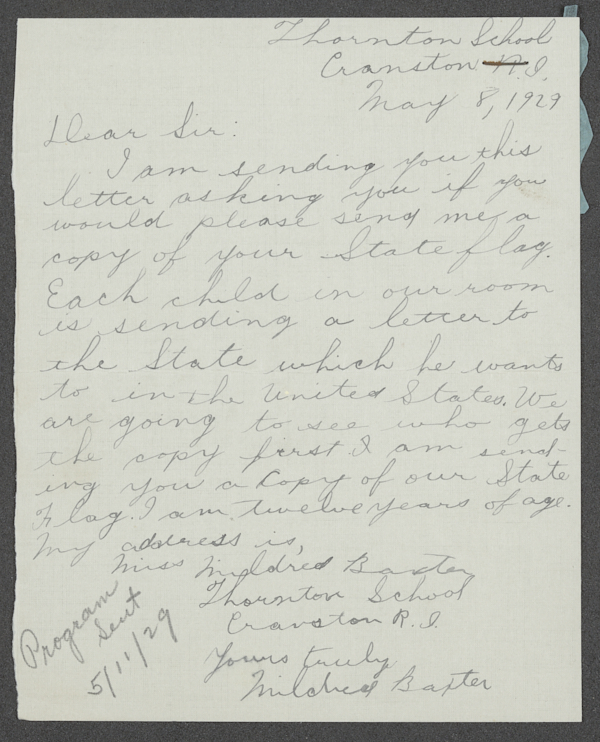 Thornton School
Cranston R.I.
May 8, 1929
Dear Sir:
I am sending you this
letter asking you if you
would please send me a
copy of your State flag.
Each child in our room
is sending a letter to
the State which he wants
to in the United States. We
are going to see who gets
the copy first I am send-
ing you a Copy of our State
Flag. I am twelve years of age.
My address is,
Miss Mildred Baxter
Thornton School
Cranston R.I.
Yours truly
Mildred Baxter
Program
Sent
5/11/29